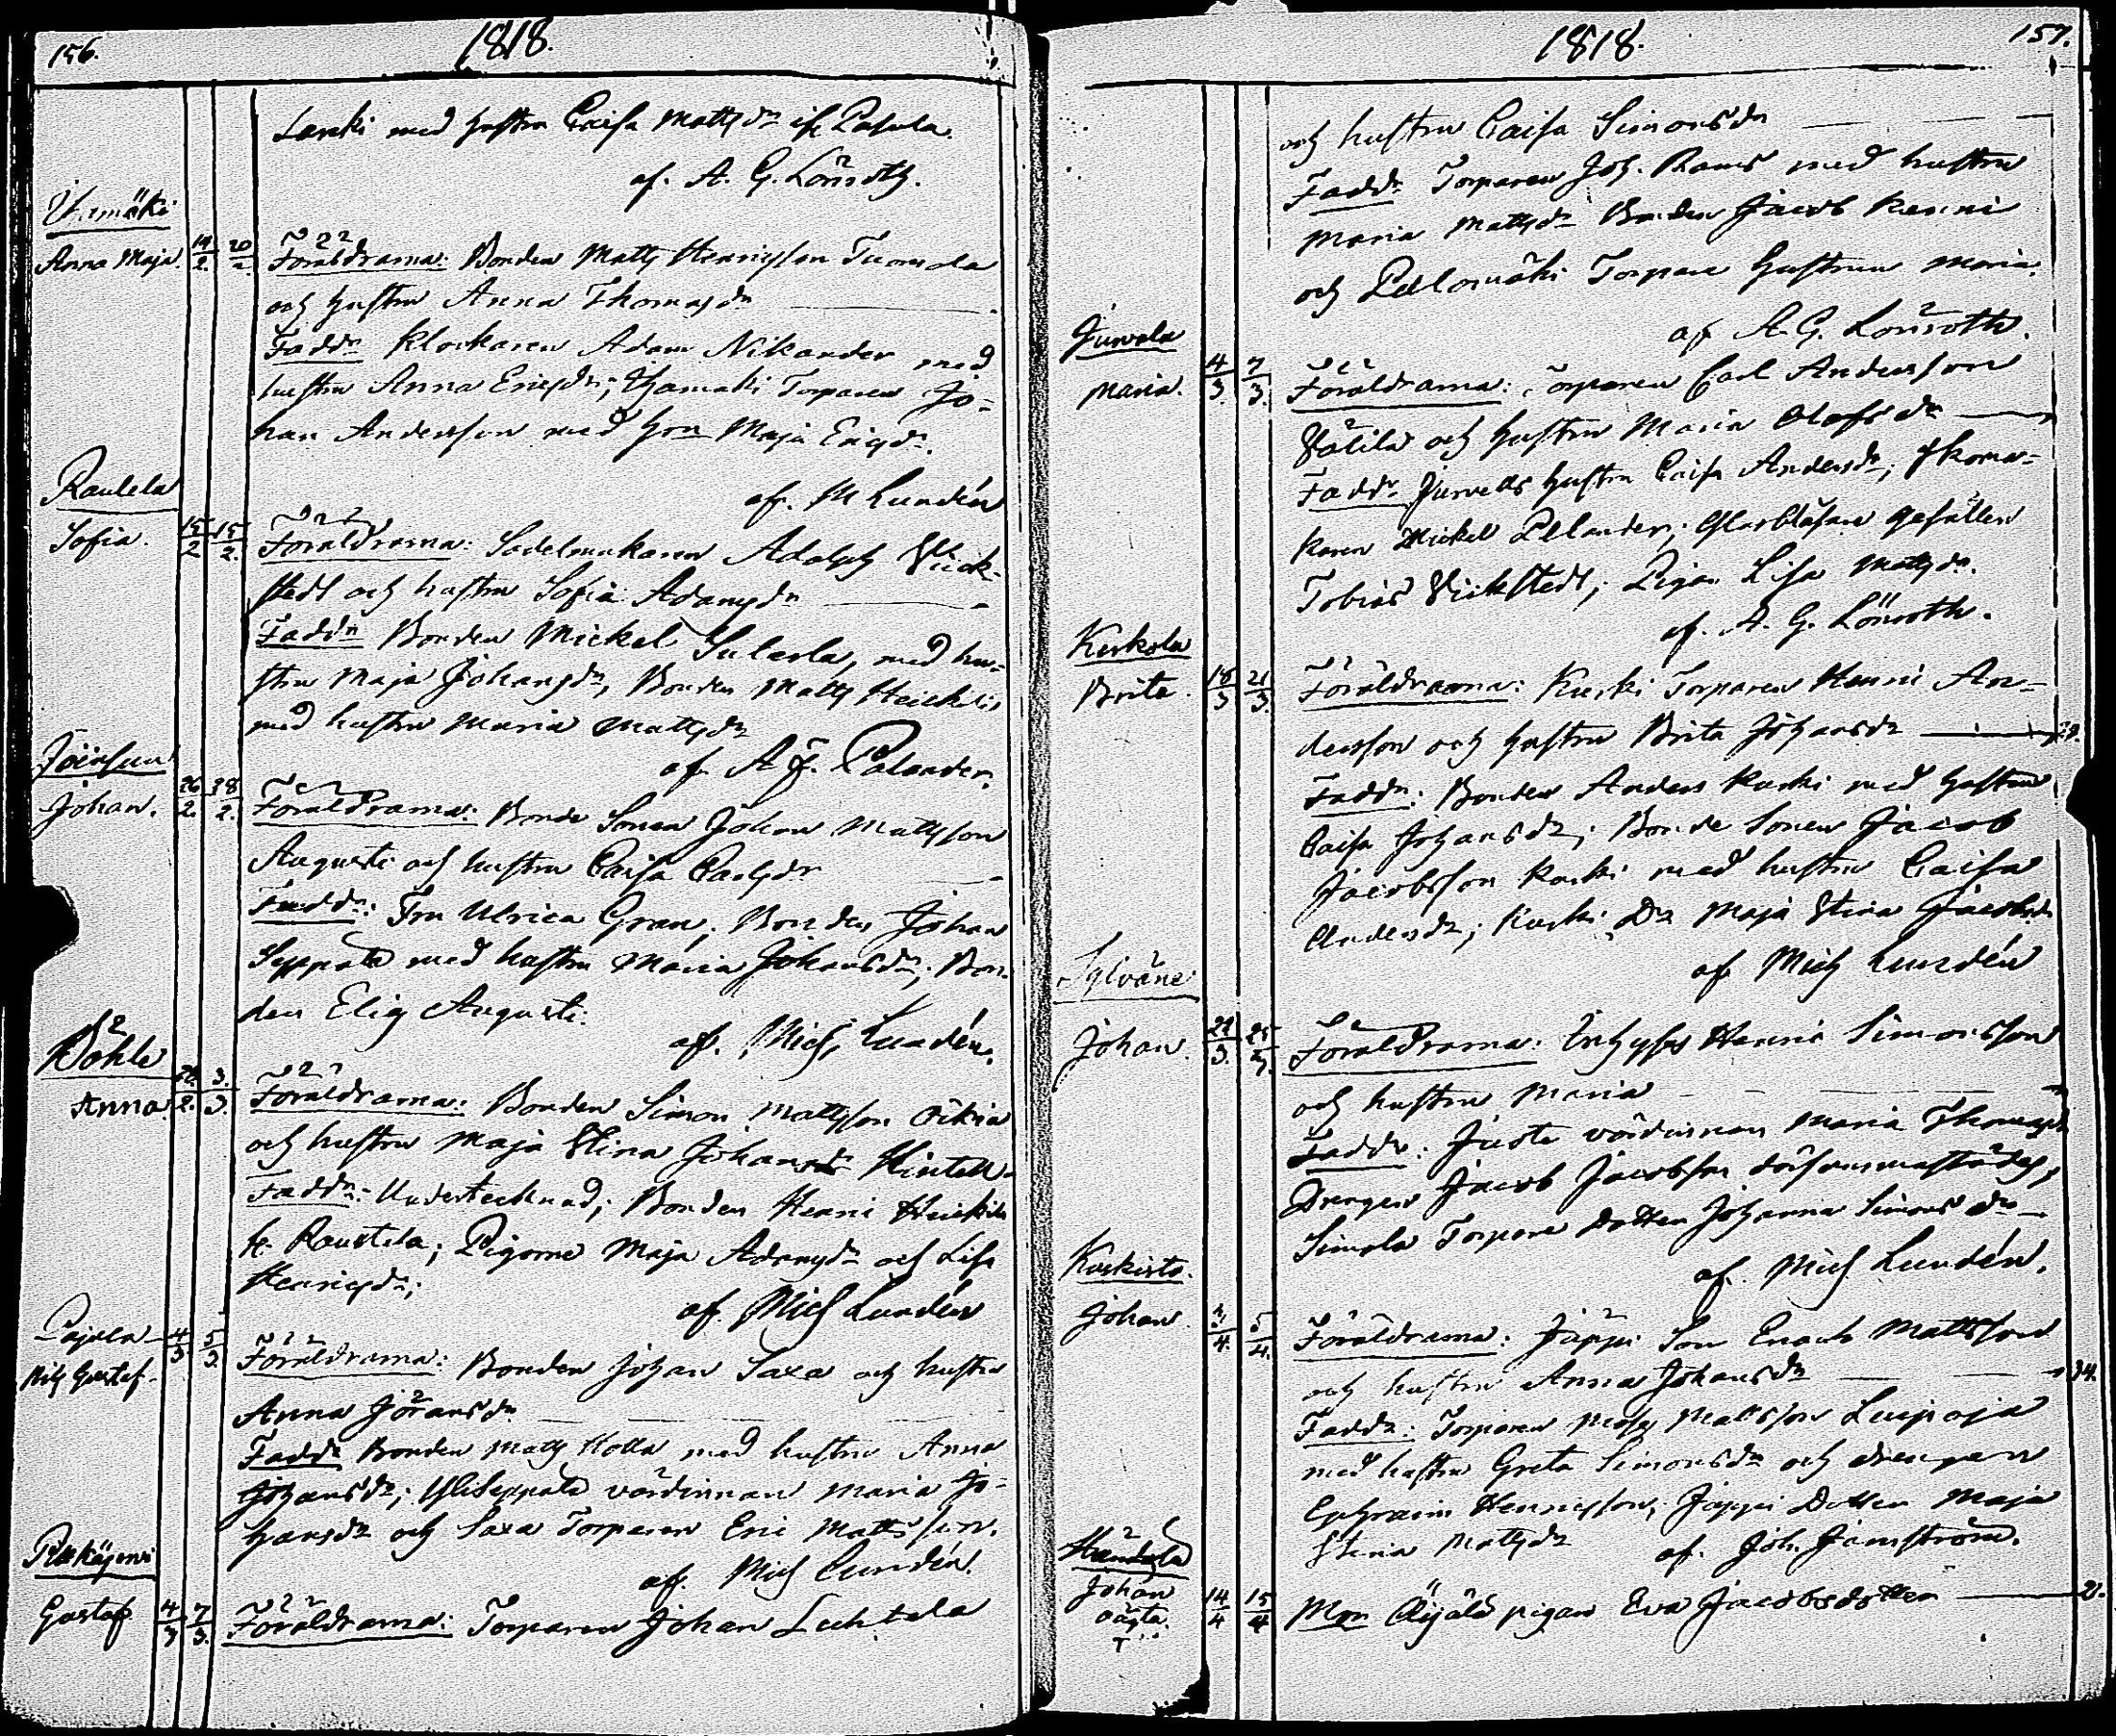 156.
1818.
Laski med hustru Caisa Mattsdr
af. A. G. Lönroth.
Anna Maja. 19/2 20/2
Föräldrarna: Bonden Matts Henricsson Tuomola
och hustru Anna Thomasdr
Faddr Klockaren Adam Nikander med
hustru Anna Ericsdr; Torparen Jo-
han Andersson med Hon Maja Ericsdr.
af. M Lundén
Raulela
Sofia. 15/2 15/2
Föräldrarna: Sadelmakaren Adolph Vick-
stedt och hustru Sofia Adamsdr
Faddr Bonden Mickel Sulerla, med hu-
stru Maja Johansdr, Bonden Matts Heickilä
med hustru Maria Mattsdr
af A. F. Polander.
Johan. 26/2. 28/2.
Föräldrarna: Bonde Sonen Johan Mattsson
Augusti och hustru Caisa Carlsdr
Faddr: Fru Ulrica Gran; Bonden Johan
Seppälä med hustru Maria Johansdr; Bon-
den Elig Augusti.
af. Mich Lundén.
Anna 28./2. 3./3.
Föräldrarna: Bonden Simon Mattsson
och hustru Maja Stina Johansdr
Faddr: Undertecknad; Bonden Henric Heickilä
fr. Raustila; Pigorne Maja Adamsdr och Lisa
Henricsdr;
af. Mich Lundén
Pajula 4/3 5/3.
Nils Gustaf.
Föräldrarna: Bonden Johan Saxa och hustru
Anna Jöransdr
Faddr Bonden Matts Holla med hustru Anna
Johansdr; Yliseppälä värdinnan Maria Jo-
hansdr och Saxa Torparen Eric Mattsson.
af. Mich Lundén.
Gustaf 4/3 7/3.
Föräldrarna: Torparen Johan Luhtala
1818.
157.
och hustru Caisa Simonsdr
Faddr Torparen Joh. Rams med hustru
Maria Mattsdr Bonden Jacob Kenni
och Pellomäki Torpare Hustrun Maria.
af A. G. Lönroth.
Jurvala
Maria. 4/3. 7/3.
Föräldrarna: Torparen Carl Andersson
Välilä och hustru Maria Olofsdr
Faddr Jurvalls hustru Caisa Andersdr; Skoma-
karen Mickel Pelander; Glasblåsare gesällen
Tobias Vickstedt; Pigan Lisa Mattsdr.
af. A. G. Lönroth.
Kerkola
Brita. 18/3 21/3.
Föräldrarna: Kurki Torparen Henric An-
dersson och hustru Brita Johansdr
Faddr: Bonden Anders Kurki med hustru
Caisa Johansdr; Bonde Sonen Jacob
Jacobsson Kurki med hustru Caisa
Andersdr; Kurki Dr Maja Stina Jacobsdr
af Mich Lundén
Sylväne
Johan. 22/3. 25/3.
Föräldrarna: Inhyses Henric Simonsson
och hustru Maria
Faddr: Juste värdinnan Maria Thomasdr
Drengen Jacob Jacobsson
Simola Torpare Dotter Johanna Simonsdr
af. Mich Lundén.
Kuskisto.
Johan. 3/4. 5/4.
Föräldrarna: Jäppi Son Enoch Mattsson
och hustru Anna Johansdr 34.
Faddr: Torparen Mattsson Luipaja
med hustru Greta Simonsdr och drengen
Ephraim Henricsson; Jäppi Dotter Maja
Stina Mattsdr af. Joh. Jamström.
Johan
oägta. 14/4 15/4
Mon Äijälä pigan Eva Jacobsdotter 21.